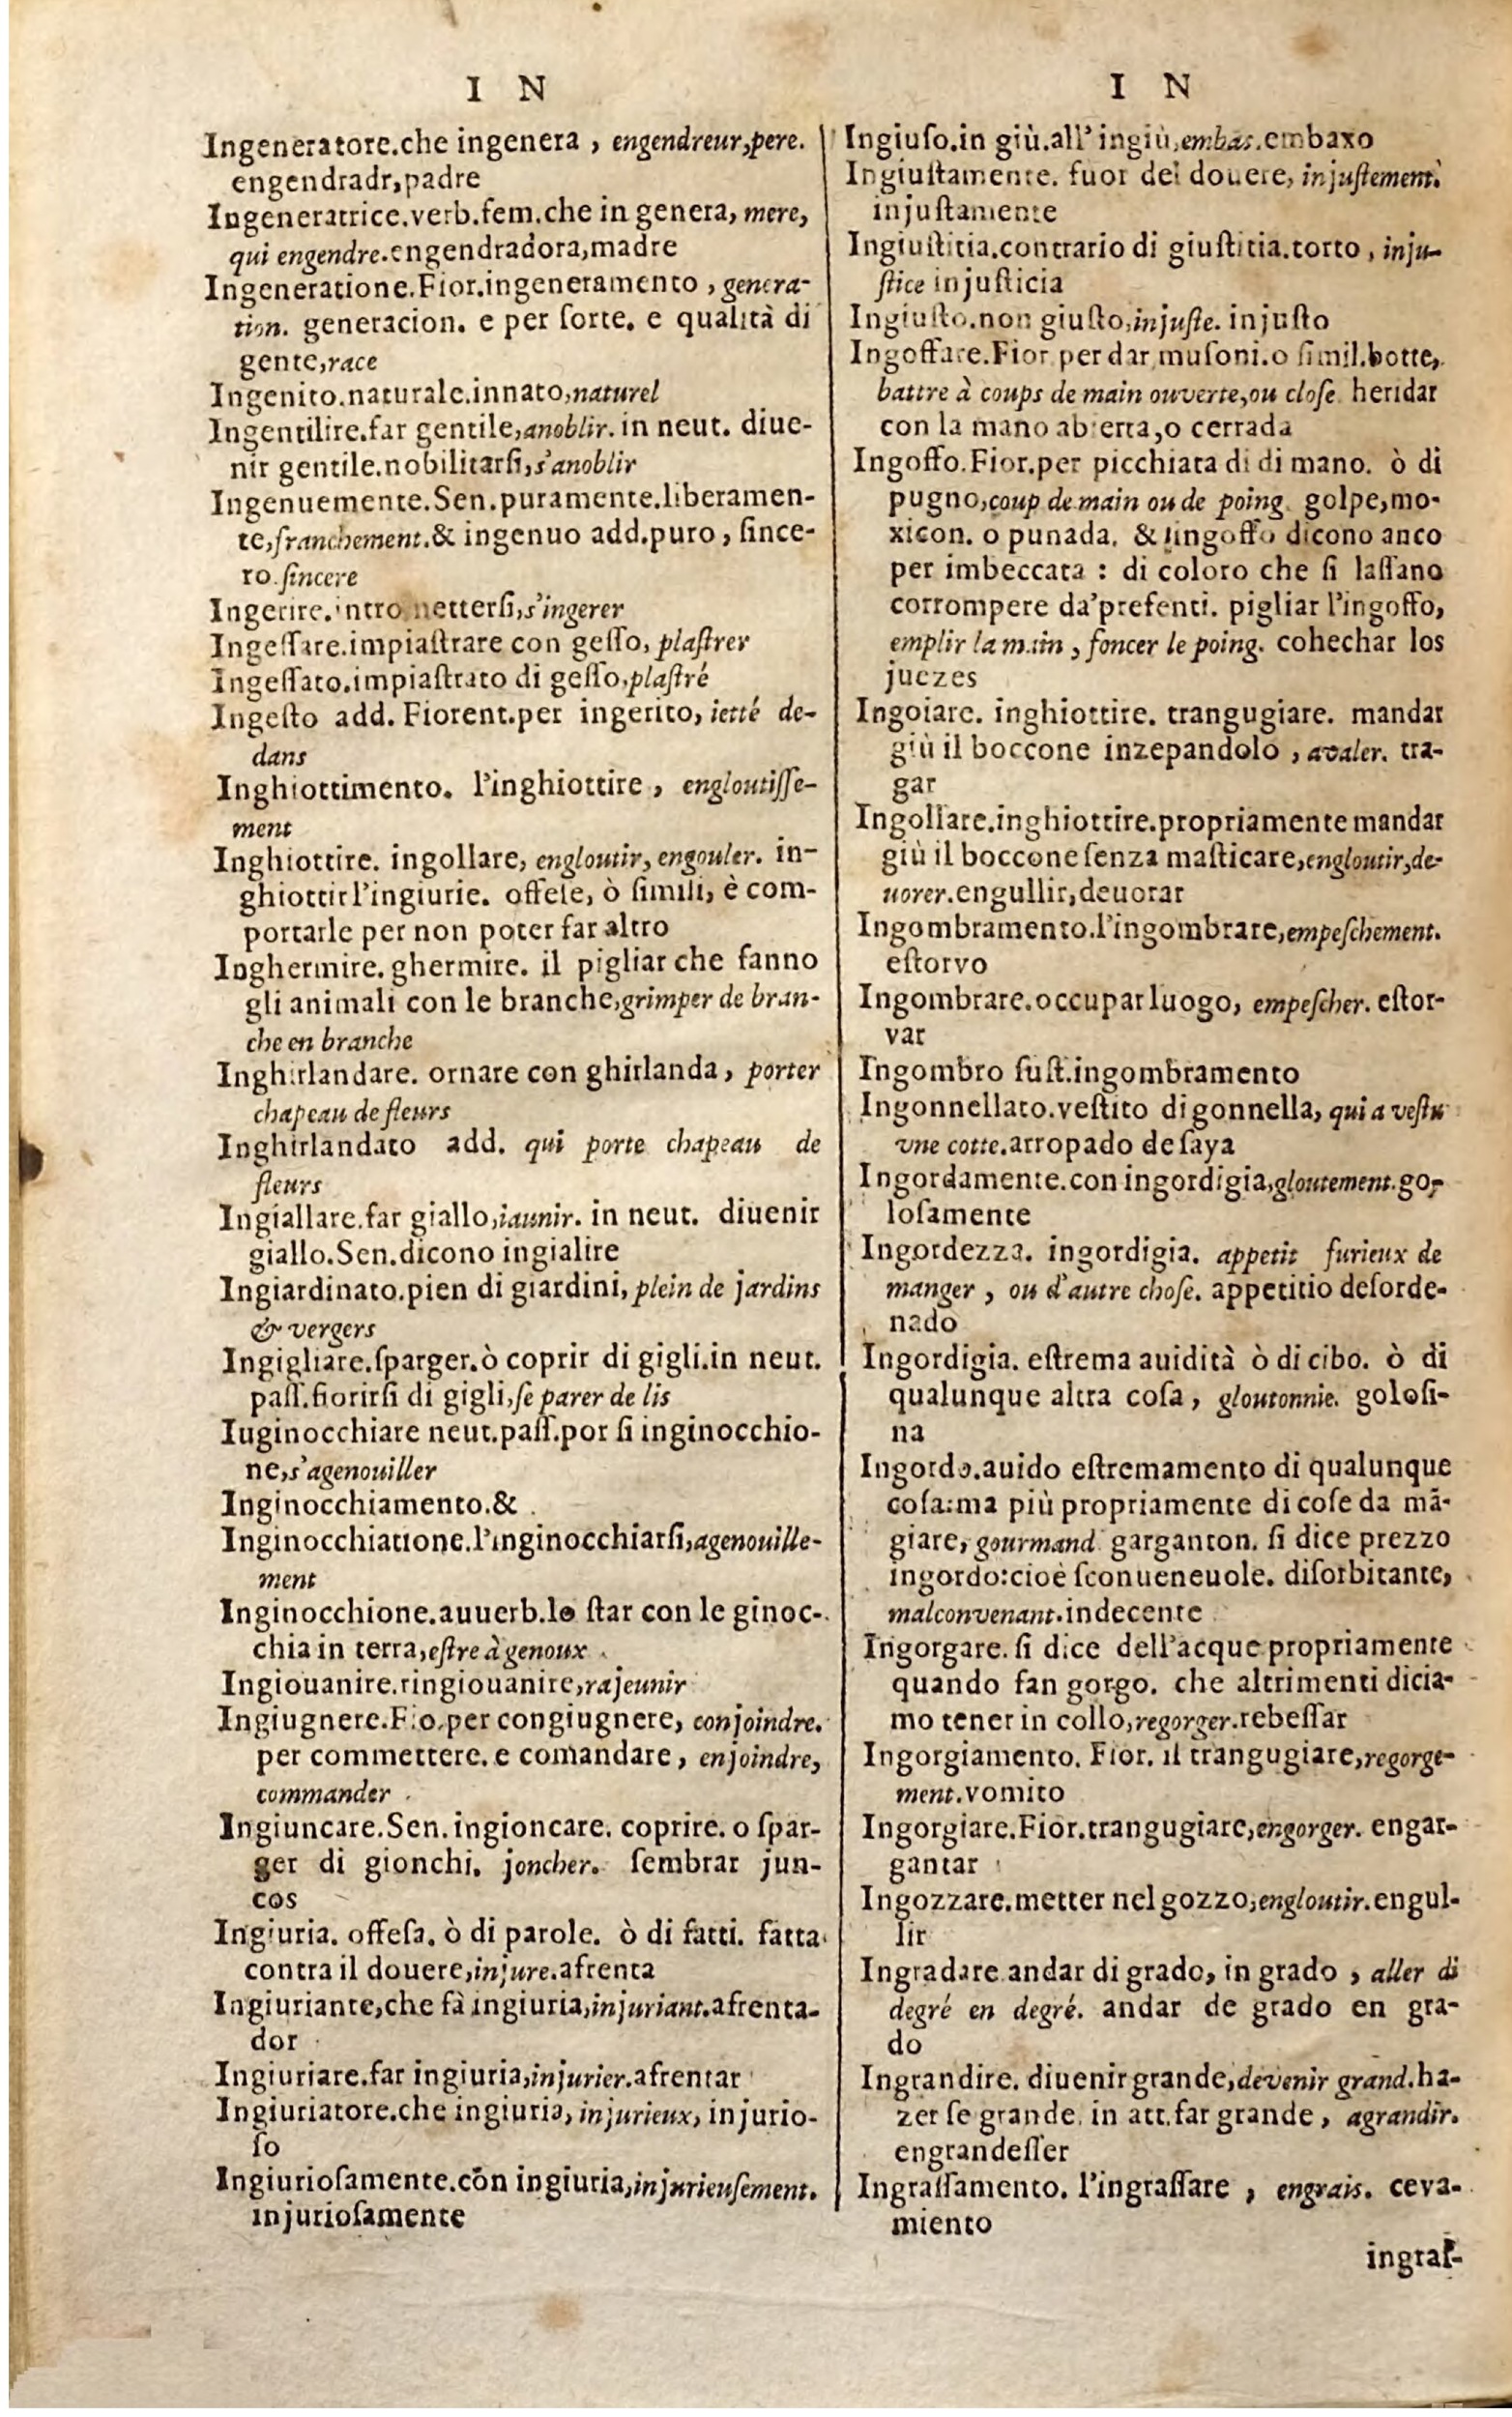 I N
Ingeneratore.che ingenera , engendreur,pere.
engendradr,padre
Iugeneratrice.verb.fem.che in genera, mere,
qui engendre.engendradora,madre
Ingeneratione.Fior.ingeneramento , genera-
tion. generacion. e per ſorte. e qualità di
gente,race
Ingenito.naturale.innato,naturel
Ingentilire.far gentile,anoblir. in neut. diue-
nir gentile.nobilitarſi,s'anoblir
Ingenuemente.Sen.puramente.liberamen-
te,franchement.& ingenuo add.puro , ſince-
ro.ſincere
Ingerire. intro metterſi,s'ingerer
Ingeſſare.impiaſtrare con geſſo, plaſtrer
Ingeſſato.impiaſtrato di geſſo.plaſtré
Ingeſto add. Fiorent.per ingerito, ietté de-
dans
Inghiottimento. l'inghiottire , engloutiſſe-
ment
Inghiottire. ingollare, engloutir, engouler. in-
ghiottir l'ingiurie. offeſe, ò ſimili, è com-
portarle per non poter far altro
Inghermire. ghermire. il pigliar che fanno
gli animali con le branche,grimper de bran-
che en branche
Inghirlandare. ornare con ghirlanda , porter
chapeau de fleurs
Inghirlandato add. qui porte chapeau de
fleurs
Ingiallare.far giallo,iaunir. in neut. diuenir
giallo.Sen.dicono ingialire
Ingiardinato.pien di giardini, plein de jardins
& vergers
Ingigliare.ſparger.ò coprir di gigli.in neut.
paſſ.fiorirſi di gigli,ſe parer de lis
Iuginocchiare neut.paſſ.por ſi inginocchio-
ne,s'agenouiller
Inginocchiamento.&
Inginocchiatione.l'inginocchiarſi,agenouille-
ment
Inginocchione.auuerb.lo ſtar con le ginoc-
chia in terra,eſtre à genoux
Ingiouanire.ringiouanire,rajeunir
Ingiugnere.Fio.per congiugnere, conjoindre.
per commettere. e comandare , enjoindre,
commander
Ingiuncare.Sen. ingioncare. coprire. o ſpar-
ger di gionchi. joncher. ſembrar jun-
cos
Ingiuria. offeſa. ò di parole. ò di fatti. fatta
contra il douere,injure.afrenta
Ingiuriante,che fà ingiuria,injuriant.afrenta-
dor
Ingiuriare.far ingiuria,injurier.afrentar
Ingiuriatore.che ingiuria, injurieux, injurio-
ſo
Ingiurioſamente.con ingiuria,injurieuſement.
injurioſamente
I N
Ingiuſo.in giù.all' ingiù,embas.embaxo
Ingiuſtamente. fuor del douere, injuſtement.
injuſtamente
Ingiuſtitia.contrario di giuſtitia.torto , inju-
ſtice injuſticia
Ingiuſto.non giuſto,injuſte. injuſto
Ingoffare.Fior per dar muſoni.o ſimil.botte,
battre à coups de main ouverte,ou cloſe heridar
con la mano abierta,o cerrada
Ingoffo.Fior.per picchiata di di mano. ò di
pugno,coup de main ou de poing. golpe,mo-
xicon. o punada. & ingoffo dicono anco
per imbeccata : di coloro che ſi laſſano
corrompere da'preſenti. pigliar l'ingoffo,
emplir la main , foncer le poing. cohechar los
juezes
Ingoiare. inghiottire. trangugiare. mandar
giù il boccone inzepandolo , avaler. tra-
gar
Ingollare.inghiottire.propriamente mandar
giù il boccone ſenza maſticare,engloutir,de-
uorer.engullir,deuorar
Ingombramento.l'ingombrare,empeſchement.
eſtorvo
Ingombrare.occupar luogo, empeſcher. eſtor-
var
Ingombro ſuſt.ingombramento
Ingonnellato.veſtito di gonnella, qui a veſtu
vne cotte.arropado de ſaya
Ingordamente.con ingordigia,gloutement.go-
loſamente
Ingordezza. ingordigia. appetit furieux de
manger , ou d'autre choſe. appetitio deſorde-
nado
Ingordigia. eſtrema auidità ò di cibo. ò di
qualunque altra coſa , gloutonnie. goloſi-
na
Ingordo.auido eſtremamento di qualunque
coſa:ma più propriamente di coſe da mã-
giare, gourmand garganton. ſi dice prezzo
ingordo:cioè ſconueneuole. diſorbitante,
malconvenant.indecente
Ingorgare. ſi dice dell'acque propriamente
quando fan gorgo. che altrimenti dicia-
mo tener in collo,regorger.rebeſſar
Ingorgiamento. Fior. il trangugiare,regorge-
ment.vomito
Ingorgiare.Fior.trangugiare,engorger. engar-
gantar
Ingozzare.metter nel gozzo,engloutir.engul-
lir
Ingradare andar di grado, in grado , aller di
degré en degré. andar de grado en gra-
do
Ingrandire. diuenir grande,devenir grand.ha-
zer ſe grande. in att.far grande , agrandir.
engrandeſſer
Ingraſſamento. l'ingraſſare , engrais. ceva-
miento
ingraſ-